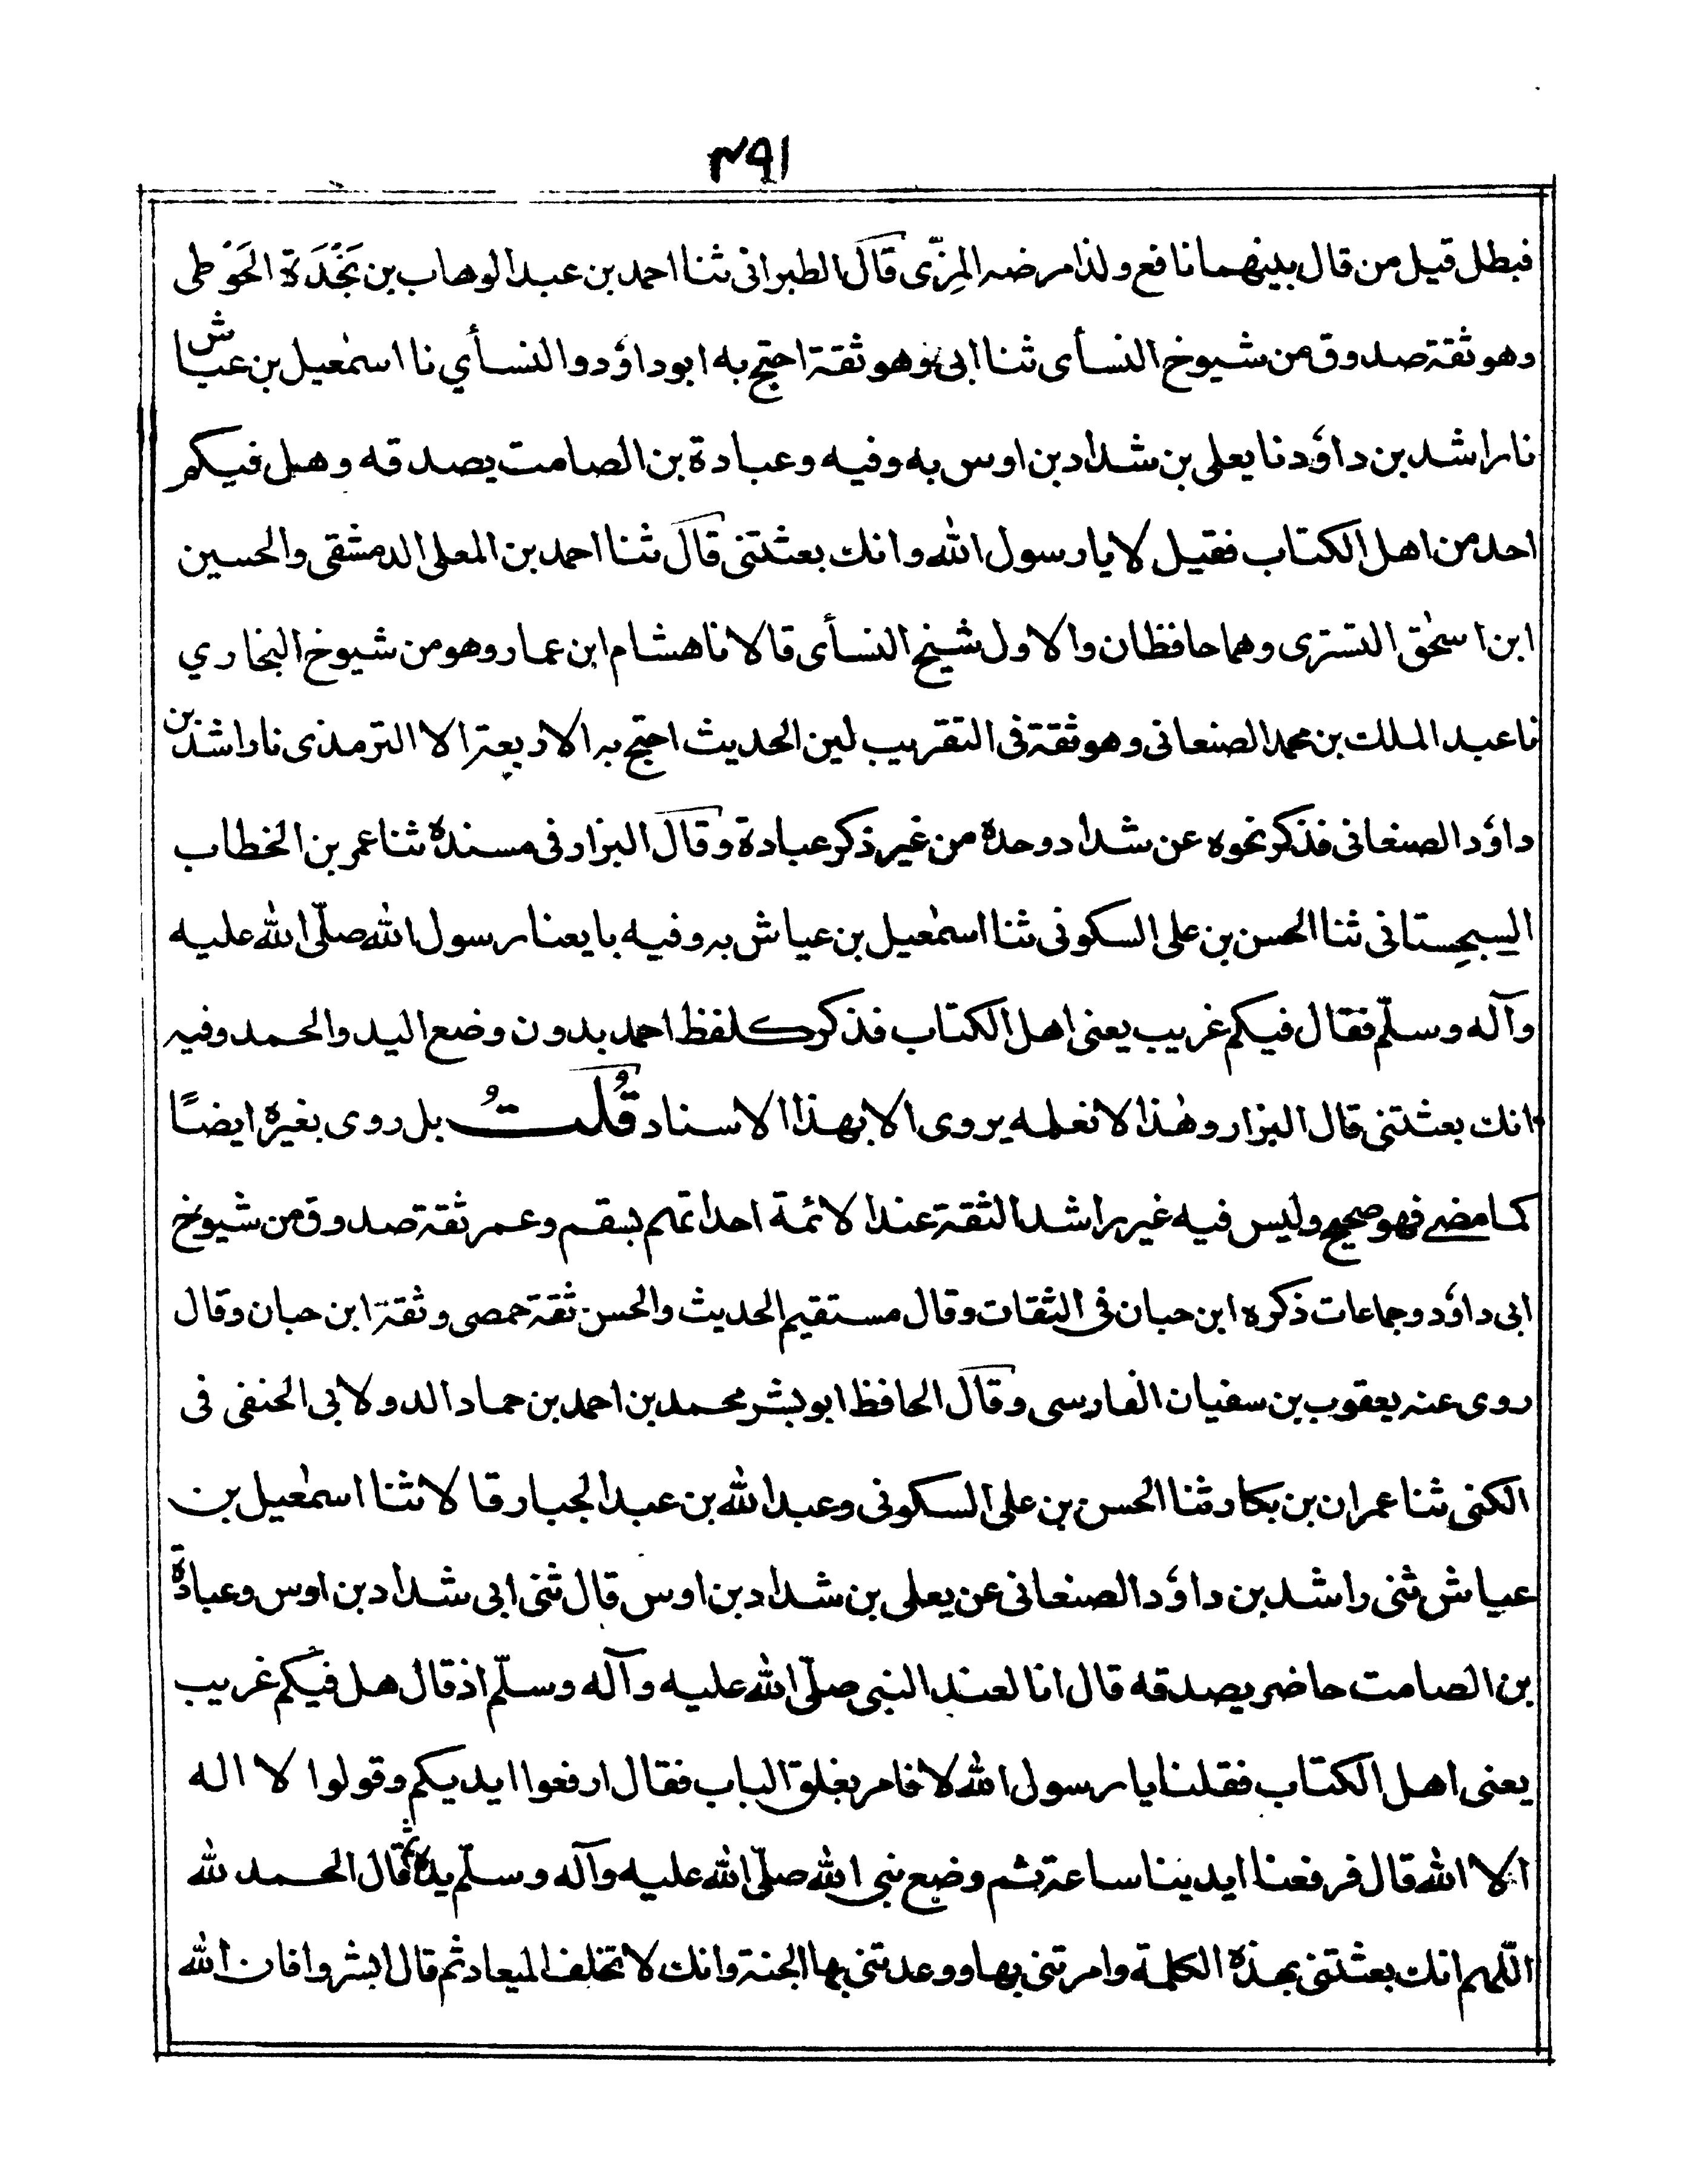 ۳۹۱
فبطل قيل من قال بينهما نافع ولذا مرضه المِزّى قال الطبرانى ثنا احمد بن عبد الوهاب بن نَجْدَة الحَوْطى
وهو ثقة صدوق من شيوخ النسأى ثنا ابى وهو ثقة احتج به ابو داؤد والنسأي نا اسمٰعيل بن عباش
نا راشد بن داؤد نا يعلى بن شداد بن اوس به وفيه وعبادة بن الصامت يصدقه وهل فيكم
احد من اهل الكتاب فقيل لا يا رسول الله وانك بعثتنى قال ثنا احمد بن المعلى الدمشقى والحسين
ابن اسحٰق التسترى وهما حافظان والاول شيخ النسأى قالا نا هشام ابن عمار وهو من شيوخ البخاري
نا عبد الملك بن محمد الصنعانى وهو ثقة فى التقريب لين الحديث احتج به الاربعة الا الترمذى نا راشد بن
داؤد الصنعانى فذكر نحوه عن شداد وحده من غير ذكر عبادة وقال البزار فى مسنده ثنا عمر بن الخطاب
السِجِستانى ثنا الحسن بن على السكونى ثنا اسمٰعيل بن عياش به وفيه بايعنا رسول الله صلّى الله عليه
وآله وسلّم فقال فيكم غريب يعنى اهل الكتاب فذكر كلفظ احمد بدون وضع اليد والحمد وفيه
انك بعثتنى قال البزار وهٰذا لا نعلمه يروى الا بهذا الاسناد قُلتُ بل روى بغيره ايضًا
كما مضى فهو صحيح وليس فيه غير راشد الثقة عند الائمة احد اتهم بسقم وعمر ثقة صدوق من شيوخ
ابى داؤد وجماعات ذكره ابن حبان فى الثقات وقال مستقيم الحديث والحسن ثقة حمصى وثقة ابن حبان وقال
روى عنه يعقوب بن سفيان الفارسى وقال الحافظ ابو بشر محمد بن احمد بن حماد الدولابى الحنفى فى
الكنى ثنا عمران بن بكار ثنا الحسن بن على السكونى وعبد الله بن عبد الجبار قالا ثنا اسمٰعيل بن
عياش ثنى راشد بن داؤد الصنعانى عن يعلى بن شداد بن اوس قال ثنى ابى شداد بن اوس وعبادة
بن الصامت حاضر يصدقه قال انا لعند النبى صلّى الله عليه وآله وسلّم اذ قال هل فيكم غريب
يعنى اهل الكتاب فقلنا يا رسول الله لا فامر بغلق الباب فقال ارفعوا ايديكم وقولوا لا اله
الا الله قال فرفعنا ايدينا ساعة ثم وضع نبى الله صلّى الله عليه وآله وسلّم يده ثم قال الحمد لله
اللّهم انك بعثتنى بهذه الكلمة وامرتنى بها ووعدتنى بها الجنة وانك لا تخلف الميعاد ثم قال ابشروا فان الله